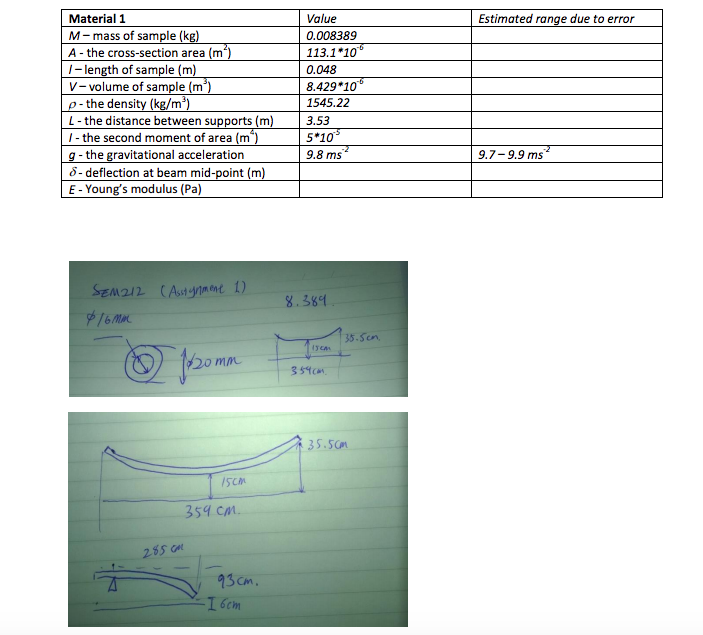 Material 1 Value Estimated range due to error
M – mass of sample (kg) 0.008389
A - the cross-section area (m²) 113.1*10⁻⁶
l – length of sample (m) 0.048
V – volume of sample (m³) 8.429*10⁻⁶
ρ - the density (kg/m³) 1545.22
L - the distance between supports (m) 3.53
I - the second moment of area (m⁴) 5*10⁻⁵
g - the gravitational acceleration 9.8 ms⁻² 9.7 – 9.9 ms⁻²
δ - deflection at beam mid-point (m)
E - Young's modulus (Pa)
SEM212 (Assignment 1)
8.389
ϕ16mm
35.5cm
15cm
ϕ20mm
354cm
35.5cm
15cm
359 cm.
285 cm
93cm.
6cm